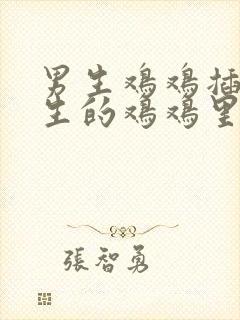 男生鸡鸡插
生的鸡鸡里
張智勇